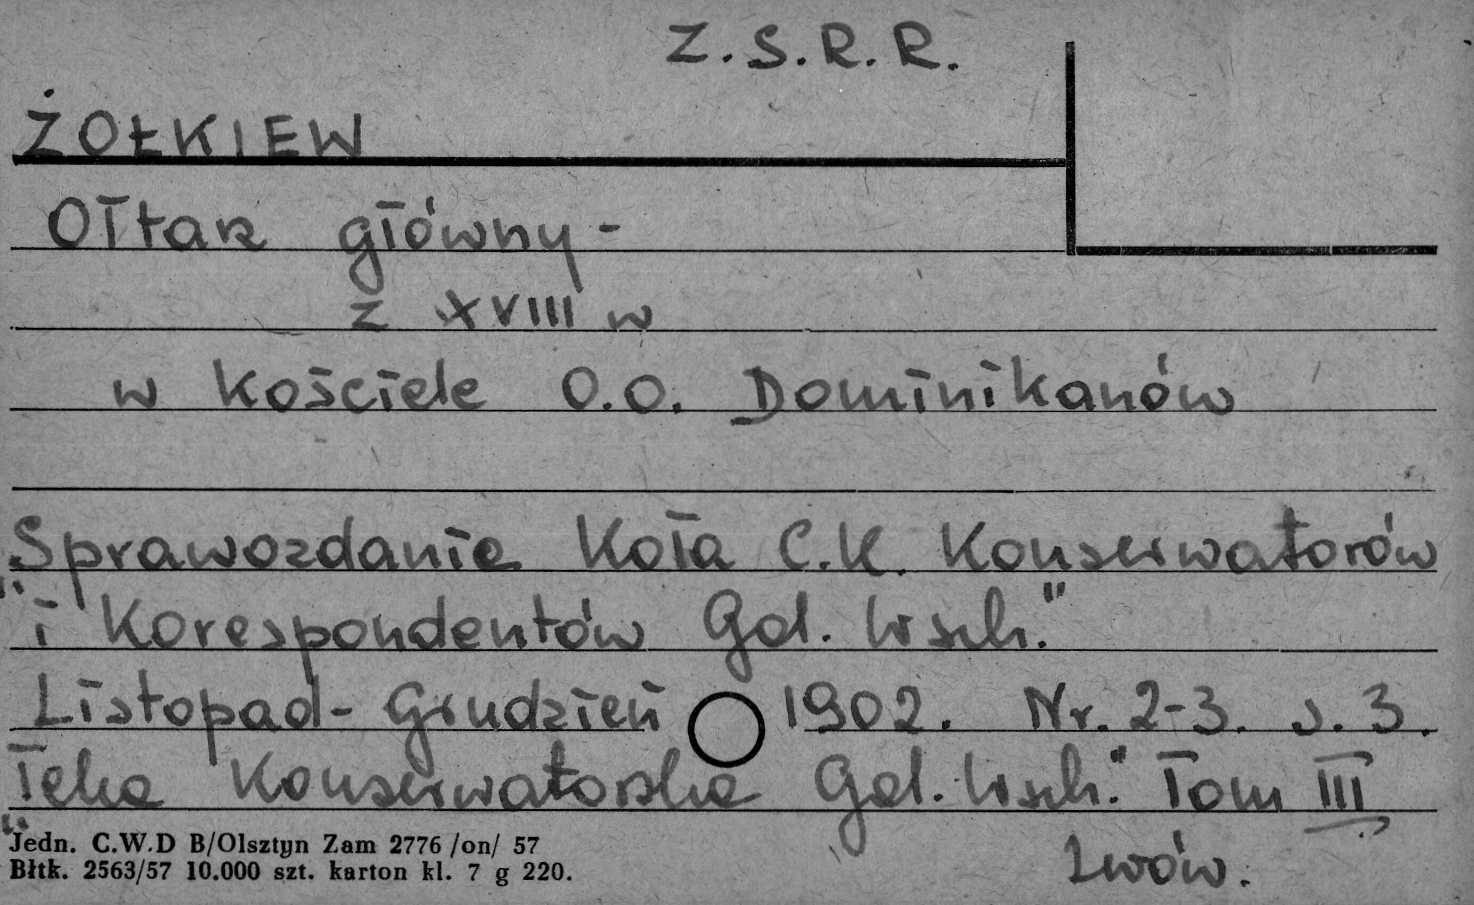 Z.S.R.R.
ŻOŁKIEW
Ołtarz główny -
z XVIII w
w Kościele O.O. Dominikanów
Sprawozdanie Koła C.K. Konserwatorów
"i Korespondentów Gal. Wsch."
Listopad - Grudzień 1902. Nr. 2-3. s. 3.
"Teka Konserwatorska Gal. Wsch." Tom III
Lwów.
Jedn. C.W.D B/Olsztyn Zam 2776 /on/ 57
Błtk. 2563/57 10.000 szt. karton kl. 7 g 220.